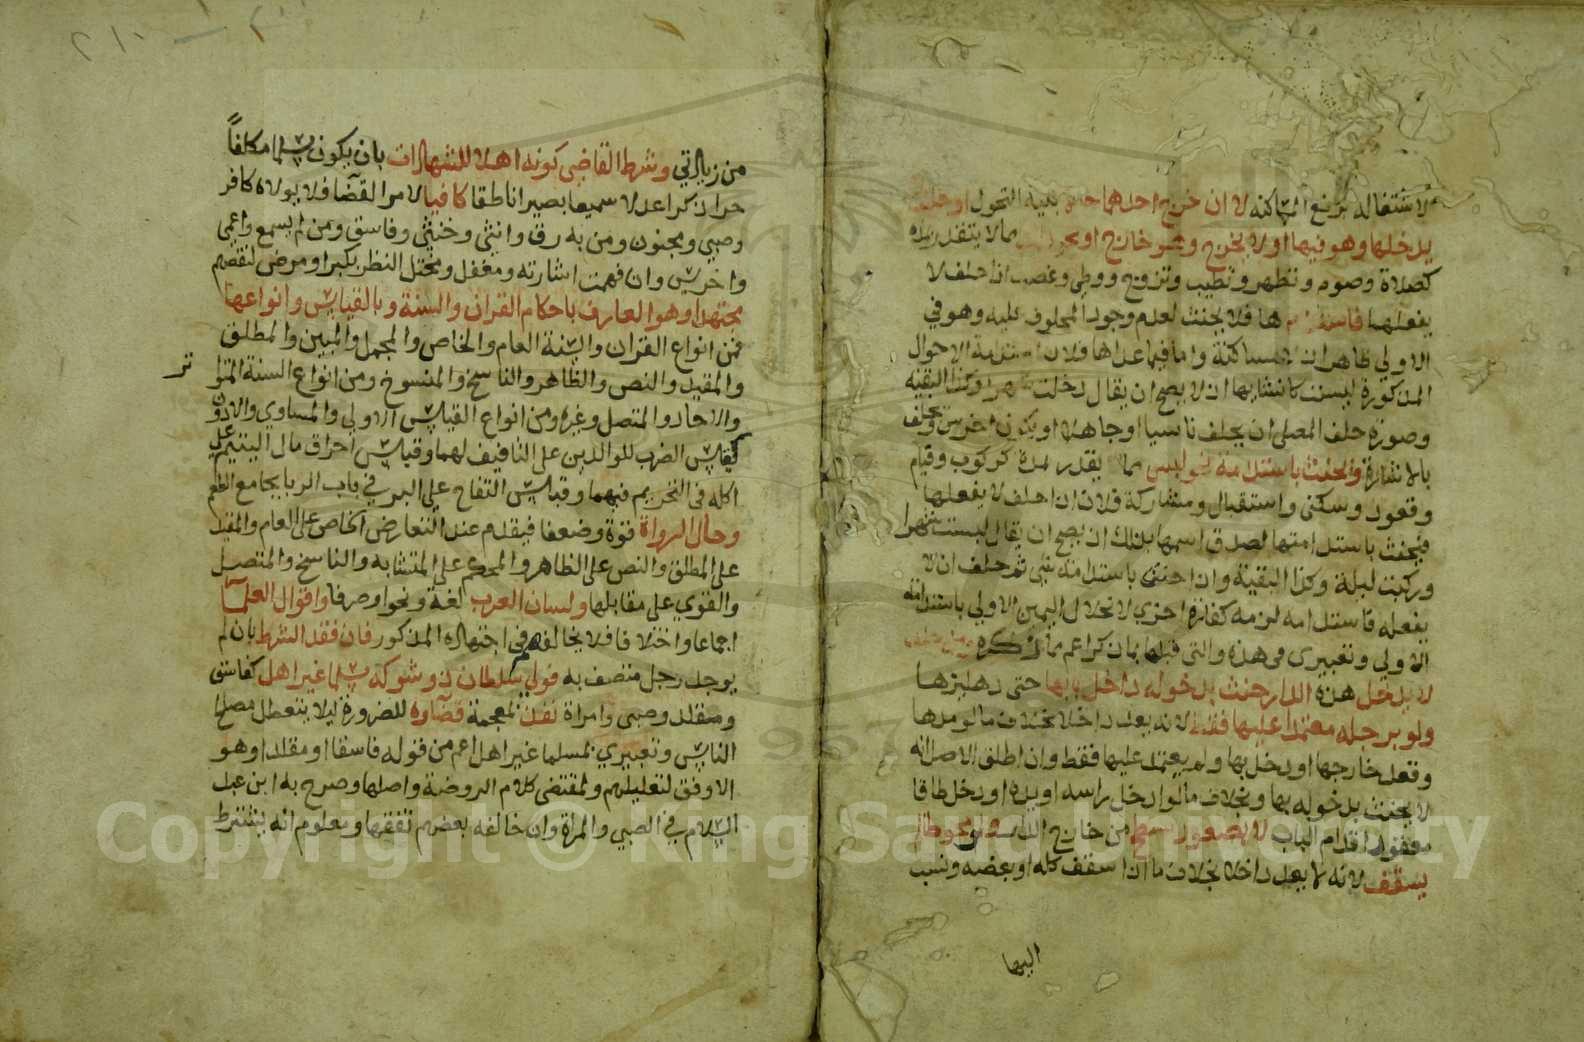 لاشتغاله برفع المساكنة لا ان خرج احدهما بنية التحول او حلف لا
يدخلها وهو فيها او لا يخرج وهو خارج او بنحو مما لا يتقدر بمدة
كصلاة وصوم وتطهر وتطيب وتزوج ووطئ وغصب اذا حلف لا
يفعلها فاستدامها فلا يحنث لعدم وجود المحلوف عليه وهو في
الاولى ظاهر اذ لا مساكنة واما فيما عداها فلان استدامة الاحوال
المذكورة ليست كانشايها اذ لا يصح ان يقال دخلت شهرا وكذا البقية
وصورة حلف المصلي ان يحلف ناسيا او جاهلا او يكون اخرس ويحلف
بالاشارة ويحنث باستدامة نحو لبس مما يقدر بمدة كركوب وقيام
وقعود وسكنى واستقبال ومشاركة فلان اذا حلف لا يفعلها
فيحنث باستدامتها لصدق اسمها بذلك اذ يصح ان يقال لبست شهرا
وركبت ليلة وكذا البقية واذا حنث باستدامة شي ثم حلف ان لا
يفعله فاستدامه لزمه كفارة اخرى لانحلال اليمين الاولى باستدامة
الاولى وتعبيري في هذه والتي قبلها بما ذكر اعم مما ذكره ومن حلف
لا يدخل هذه الدار حنث بدخوله داخل بابها حتى دهليزها
ولو برجله معتمدا عليها فقط لانه يعد داخلا بخلاف ما لو مدها
وقعد خارجها او دخل بها ولم يعتمد عليها فقط وان اطلق الاصل انه
لا يحنث بدخوله بها وبخلاف ما لو ادخل راسه او يده او دخل طاقا
معقودا قدام الباب لا بصعود سطح من خارج الدار ولو محوطا لم
يسقف لانه لا يعد داخلا بخلاف ما اذا سقف كله او بعضه ونسب
اليها
من زيادتي وشرط القاضي كونه اهلا للشهادات بان يكون مسلما مكلفاً
حرا ذكرا عدلا سميعا بصيرا ناطقا كافيا لامر القضا فلا يولاه كافر
وصبي ومجنون ومن به رق وانثى وخنثى وفاسق ومن لم يسمع واعمى
واخرس وان فهمت اشارته ومغفل ومختل النظر بكبر او مرض لنقصهم
مجتهدا وهو العارف باحكام القران والسنة وبالقياس وانواعها
فمن انواع القران والسنة العام والخاص والمجمل والمبين والمطلق
والمقيد والنص والظاهر والناسخ والمنسوخ ومن انواع السنة المتوا
تر
والاحاد والمتصل وغيره ومن انواع القياس الاولى والمساوي والادون
كقياس الضرب للوالدين على التافيف لهما وقياس احراق مال اليتيم على
اكله في التحريم فيهما وقياس التفاح على البر في باب الربا بجامع الطعم
وحال الرواة قوة وضعفا فيقدم عند التعارض الخاص على العام والمقيد
على المطلق والنص على الظاهر والمحكم على المتشابه والناسخ والمتصل
والقوي على مقابلها ولسان العرب لغة ونحوا وصرفا واقوال العلما
اجماعا واختلافا فلا يخالفهم في اجتهاده المذكور فان فقد الشرط بان لم
يوجد رجل متصف به فولى سلطان ذو شوكة مسلما غير اهل كفاسق
ومقلد وصبي وامراة نفذ بمعجمة قضاوه للضرورة ليلا يتعطل مصالح
الناس وتعبيري بمسلما غير اهل اعم من قوله فاسقا او مقلدا وهو
الاوفق لتعليلهم ولمقتضى كلام الروضة واصلها وصرح به ابن عبد
السلام في الصبي والمراة وان خالفه بعضهم تفقها ومعلوم انه يشترط
Copyright © King Saud University